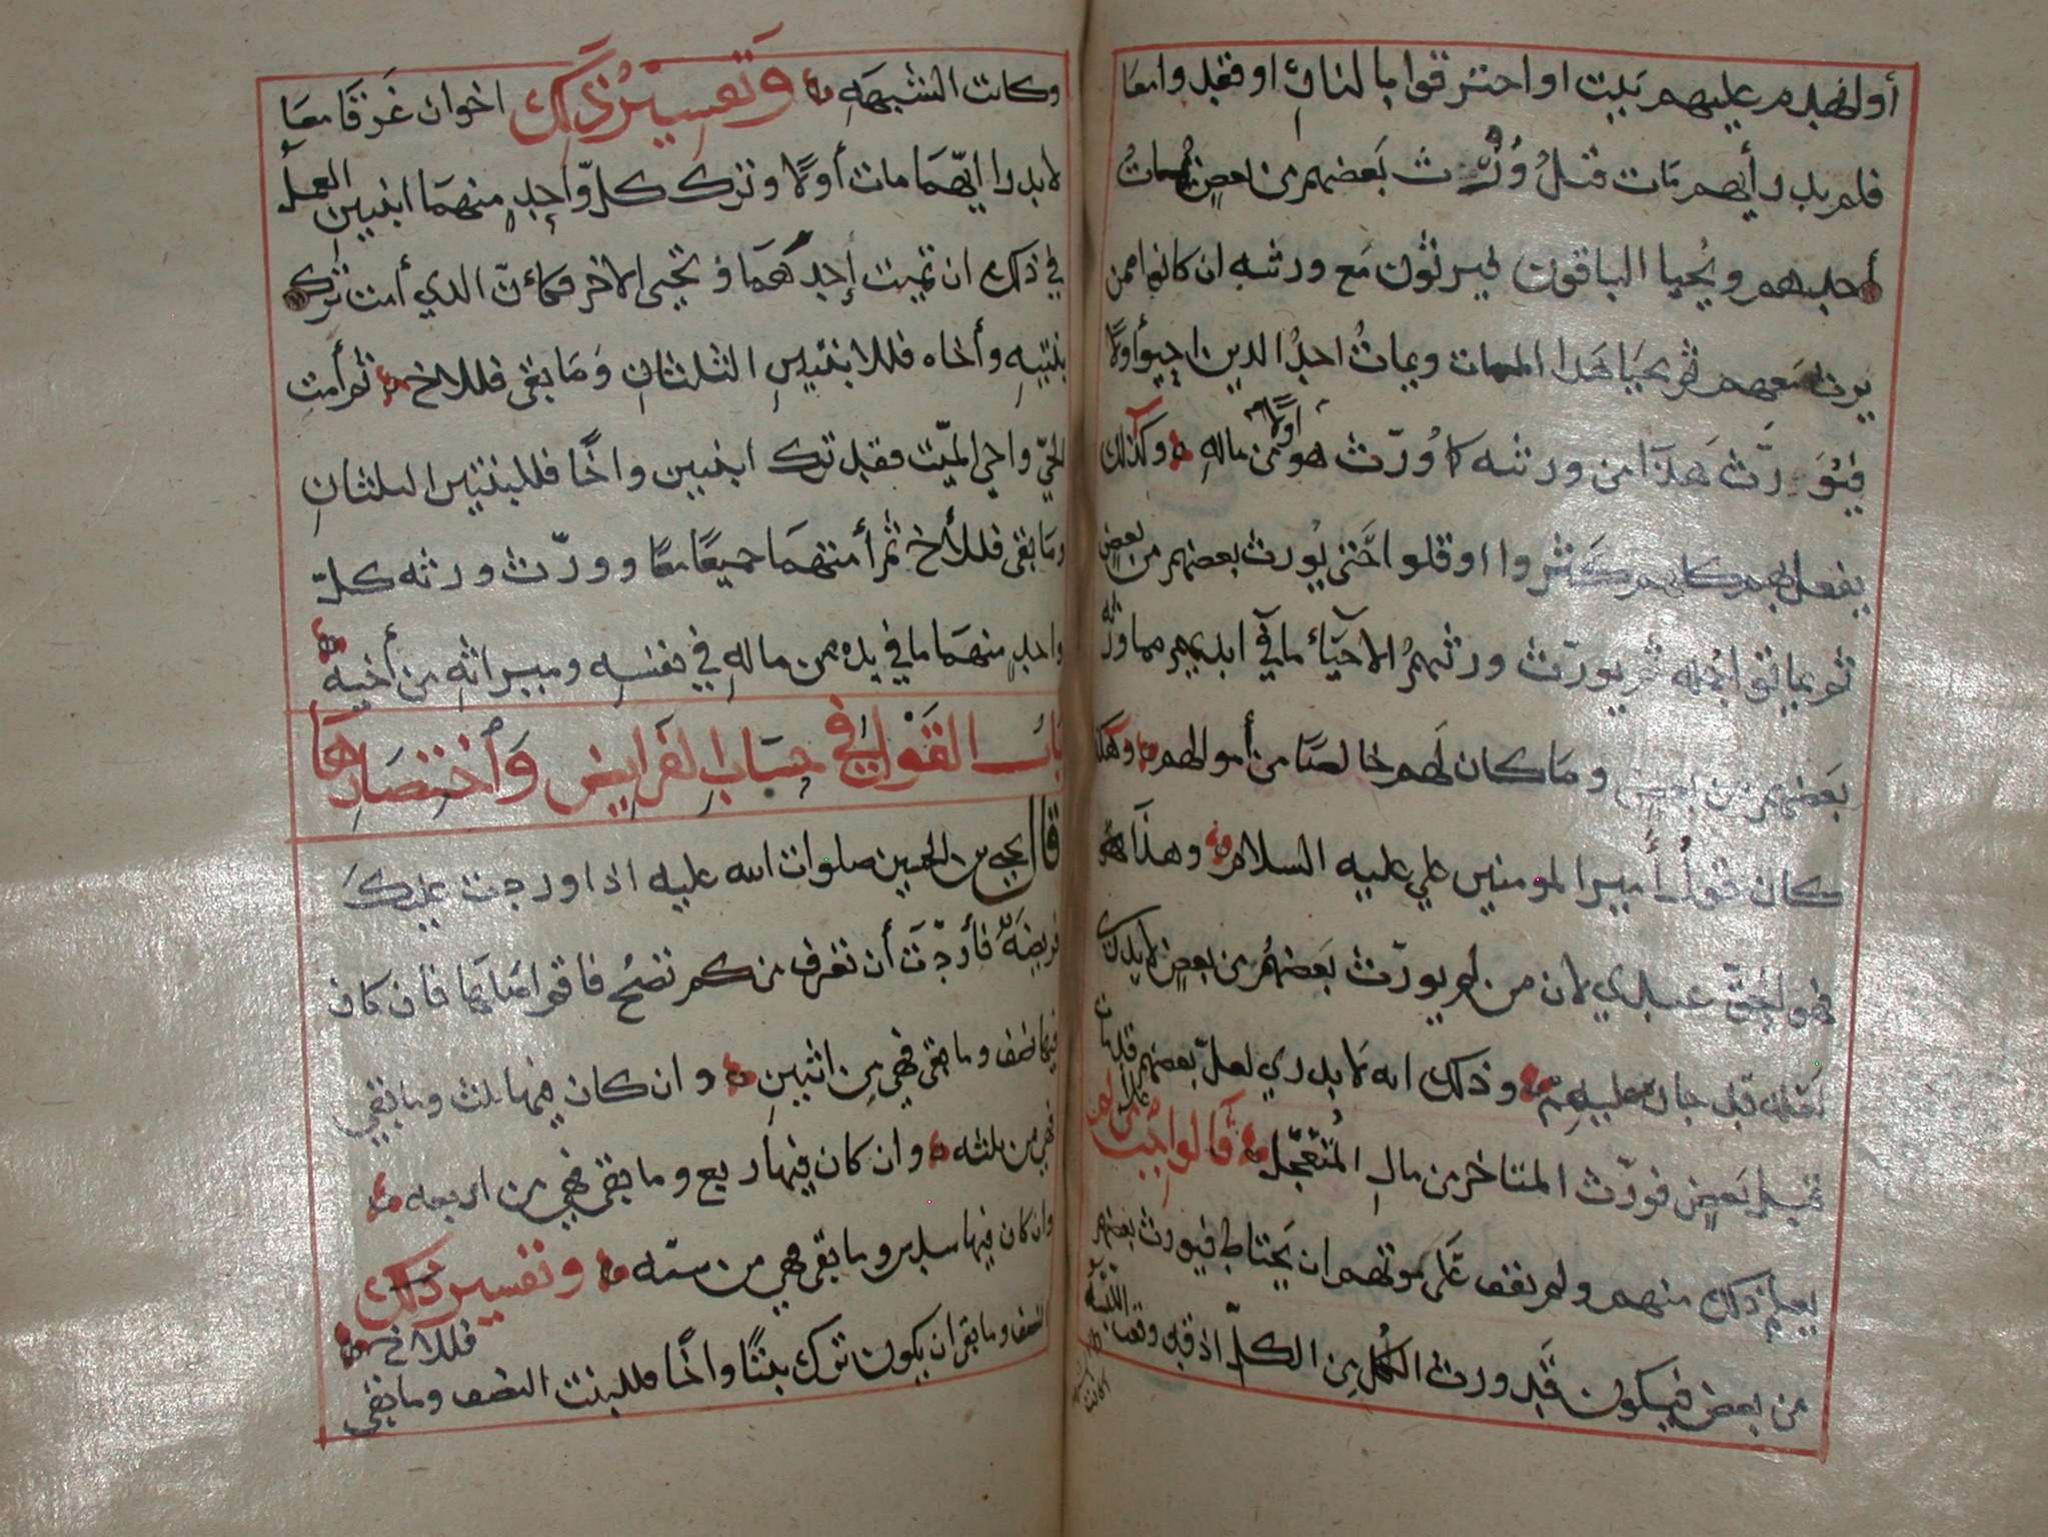 أو انهدم عليهم بيت او احترقوا بالنار او فقدوا معا
فلم يدر أيهم مات قبل وُرّث بعضهم من بعض يمات
أحدهم ويُحيا الباقون فيرثون مع ورثته ان كانوا ممن
يرث معهم ثم يحيا هذا الممات ويمات احدُ الذين احيوا أولا
فيُوَرّث هَذا من ورثته كما وُرّث هو أولاً من مالهِ وكذلك
يفعل بهم كلهم كثروا او قلوا حَتى يُورث بعضهم من بعض
ثم يماتوا جملة ثم يورّث ورثتهمُ الاحيَاء ما في ايديهم مما ورثه
بَعضهم من بعض ومَا كان لَهم خالصًا من أموالهم وهكذا
كان قولُ أمير المومنين علي عليه السلام وهذَا
فهو الحَقّ عندي لان من لم يورّث بَعضهُم من بعضٍ لا يدري
لعله قد جار عليهم وذلك انه لا يدري لعلّ بعضهم قد مات
قبل بَعضٍ فورّث المتاخر من مالِ المُتعَجّل فالواجب على من لم
يعلم ذلك منهم ولم يقف عَلى موتهم ان يَحتاط فيورث بعضهم
من بعض فيكون قَد ورث الكُل مِن الكلّ اذ قد وقعت اللبسة
وكانت الشبهَهِ وَتفسِيْرُ ذَلِكَ اخوان غَرقَا معَا
لا يدرا ايّهمَا مات أولا وترك كلّ وَاحدٍ منهمَا ابنتين العمل
في ذلك ان تميت إحدهُمَا وتحيى الاخر فكأنّ الذي أمت ترك
بنتيهِ وأخاه فللابنتيْنِ الثلثانِ وَمَا بقى فللاخ ثم أمتِ
الحيّ واحي الميّت فقد ترك ابنتين واخًا فللبنتين الثلثانِ
ومَا بقى فللأخ ثم أمتهمَا جميعًا معًا وورّث ورثه كلّ
واحدٍ منهمَا ما في يده من مالهِ في نفسِهِ وميراثهِ من أخيه
بَاب القَول في حسَابِ الفَرايضِ وَاختصَارِهَا
قال يحيى بن الحسين صلوات الله عليه اذا وردت عليكَ
فريضَة فأردّتَ أن تعرف من كم تصُح فاقم اصلها فان كان
فيها نصف وما بقى فهي مِن اثنينِ وان كان فيها ثلث وما بقي
فهي من ثلثه وان كان فيها ربع وما بقى فهي من اربعه
وان كان فيها سدس وما بقى فهي من ستّه وتفسير ذلك
النصف وما بقى ان يكون ترك بنتًا واخًا فللبنت النصف وما بقي فللاخ